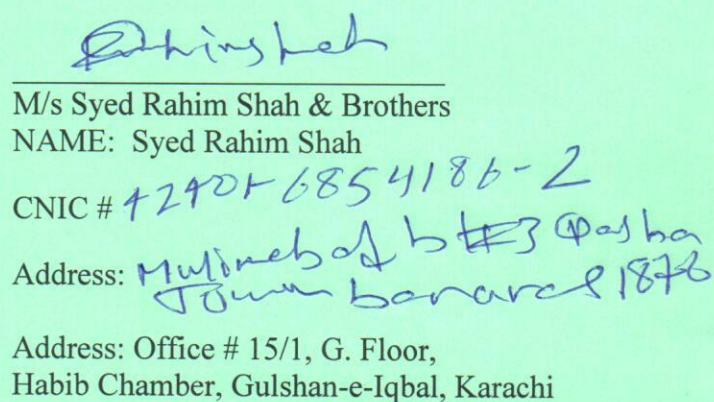 Rahimshah
M/s Syed Rahim Shah & Brothers
NAME: Syed Rahim Shah
CNIC # 42401-6854186-2
Address: b #3 Qasba
Town banaras 1878
Address: Office # 15/1, G. Floor,
Habib Chamber, Gulshan-e-Iqbal, Karachi